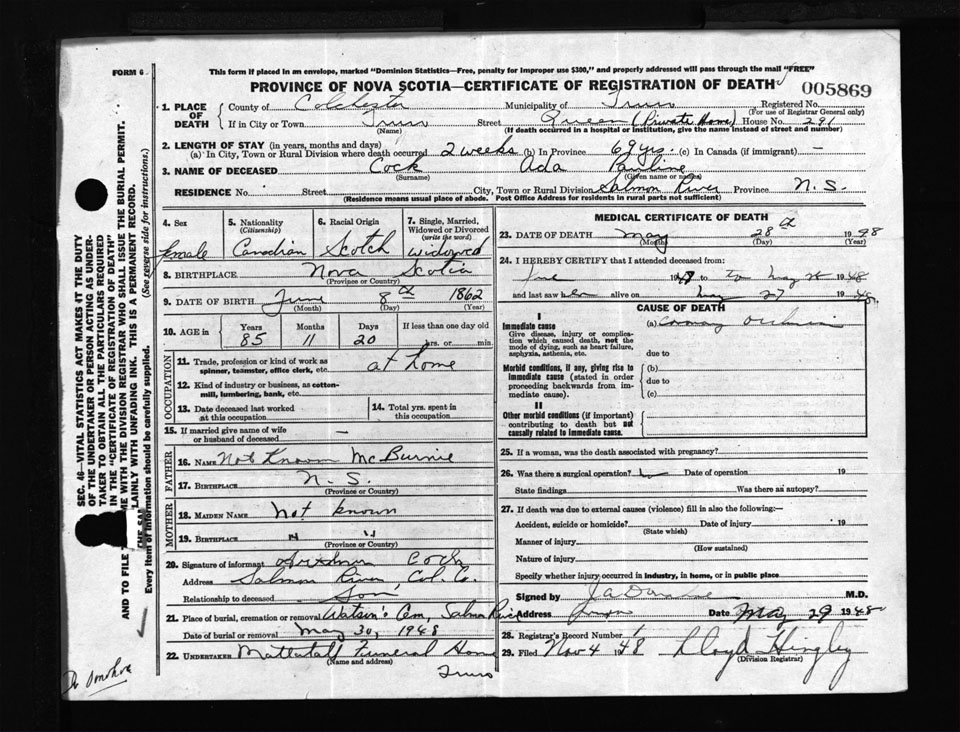 FORM 6
This form if placed in an envelope, marked "Dominion Statistics—Free, penalty for improper use $300," and properly addressed will pass through the mail "FREE"
PROVINCE OF NOVA SCOTIA—CERTIFICATE OF REGISTRATION OF DEATH
005869
1. PLACE OF DEATH
County of Colchester Municipality of Truro Registered No.
(For use of Registrar General only)
If in City or Town Truro Street Queen (Private Home) House No. 291
(Name) (If death occurred in a hospital or institution, give the name instead of street and number)
2. LENGTH OF STAY (in years, months and days)
(a) In City, Town or Rural Division where death occurred 2 weeks (b) In Province 69 yrs. (c) In Canada (if immigrant) —
3. NAME OF DECEASED Cock Ada Pauline
(Surname) (Given name or names)
RESIDENCE No. Street City, Town or Rural Division Salmon River Province N.S.
(Residence means usual place of abode. Post Office Address for residents in rural parts not sufficient)
4. Sex
female
5. Nationality
(Citizenship)
Canadian
6. Racial Origin
Scotch
7. Single, Married, Widowed or Divorced
(write the word)
widowed
8. BIRTHPLACE Nova Scotia
(Province or Country)
9. DATE OF BIRTH June 8th 1862
(Month) (Day) (Year)
10. AGE in Years Months Days If less than one day old
85 11 20 hrs. or min.
OCCUPATION
11. Trade, profession or kind of work as spinner, teamster, office clerk, etc. at home
12. Kind of industry or business, as cotton-mill, lumbering, bank, etc.
13. Date deceased last worked at this occupation
14. Total yrs. spent in this occupation
15. If married give name of wife or husband of deceased —
FATHER
16. NAME Not Known McBurnie
17. BIRTHPLACE N.S.
(Province or Country)
MOTHER
18. MAIDEN NAME Not known
19. BIRTHPLACE " "
(Province or Country)
20. Signature of informant Cock
Address Salmon River, Col. Co.
Relationship to deceased Son
21. Place of burial, cremation or removal Watson's Cem, Salmon River
Date of burial or removal May 30, 1948
22. UNDERTAKER Mattatall Funeral Home
(Name and address)
Truro
MEDICAL CERTIFICATE OF DEATH
23. DATE OF DEATH May 28th 1948
(Month) (Day) (Year)
24. I HEREBY CERTIFY that I attended deceased from:
to May 28 1948
and last saw her alive on May 27 1948
CAUSE OF DEATH
I
Immediate cause
Give disease, injury or complication which caused death, not the mode of dying, such as heart failure, asphyxia, asthenia, etc.
(a)
due to
Morbid conditions, if any, giving rise to immediate cause (stated in order proceeding backwards from immediate cause)
(b)
due to
(c)
II
Other morbid conditions (if important) contributing to death but not causally related to immediate cause.
25. If a woman, was the death associated with pregnancy?
26. Was there a surgical operation? Date of operation 19
State findings Was there an autopsy?
27. If death was due to external causes (violence) fill in also the following:—
Accident, suicide or homicide? Date of injury 19
(State which)
Manner of injury
(How sustained)
Nature of injury
Specify whether injury occurred in industry, in home, or in public place
Signed by J A Donahoe M.D.
Address Truro Date May 29 1948
28. Registrar's Record Number 1
29. Filed Nov 4 1948 Lloyd Hingley
(Division Registrar)
SEC. 46—VITAL STATISTICS ACT MAKES IT THE DUTY
OF THE UNDERTAKER OR PERSON ACTING AS UNDER-
TAKER TO OBTAIN ALL THE PARTICULARS REQUIRED
IN THE "CERTIFICATE OF REGISTRATION OF DEATH"
AND TO FILE ME WITH THE DIVISION REGISTRAR WHO SHALL ISSUE THE BURIAL PERMIT.
PLAINLY WITH UNFADING INK. THIS IS A PERMANENT RECORD.
Every item of information should be carefully supplied. (See reverse side for instructions.)
Dr Donohoe